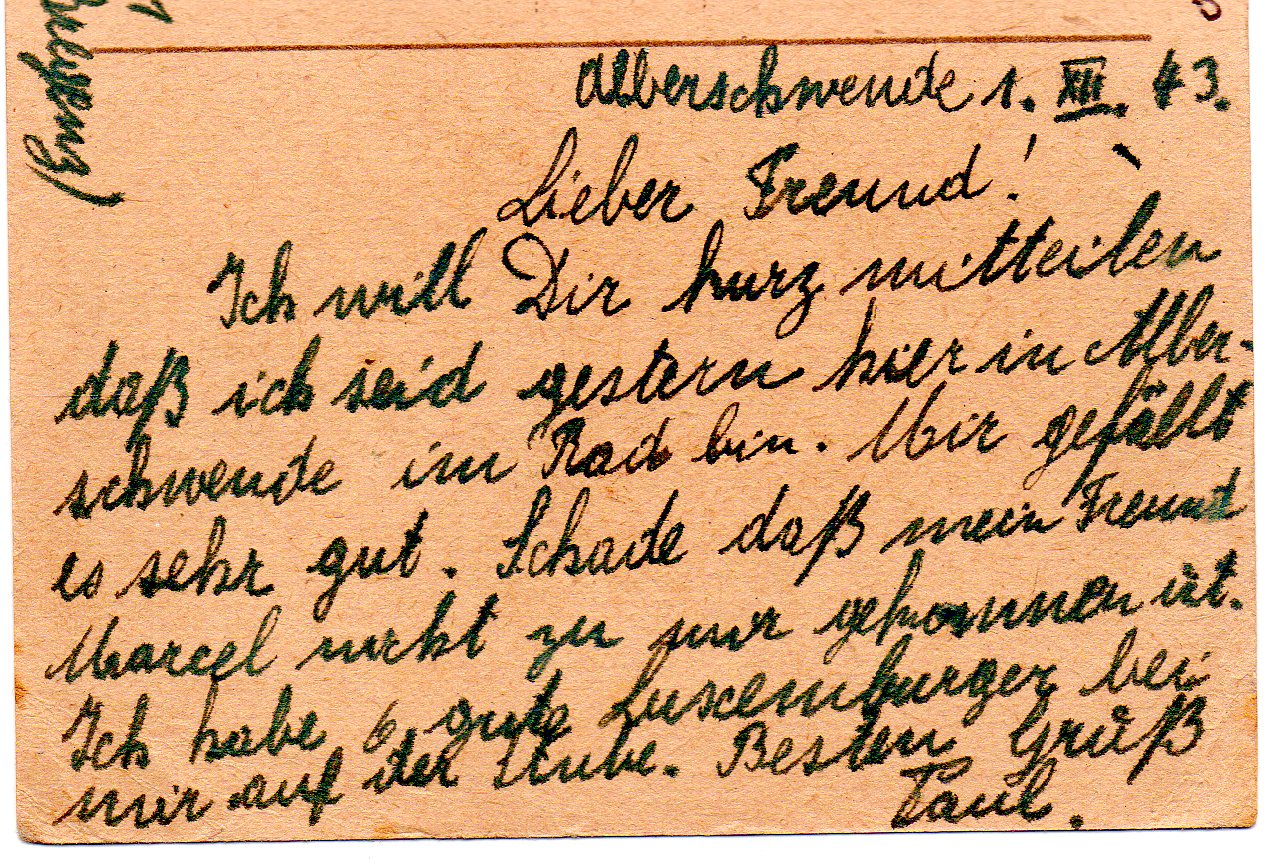 Alberschwende 1. XII. 43.
Lieber Freund!
Ich will Dir kurz mitteilen
daß ich seid gestern hier in Alber-
schwende im Rad bin. Mir gefällt
es sehr gut. Schade daß mein Freund
Marcel nicht zu mir gekommen ist.
Ich habe 6 gute Luxemburger bei
mir auf der Stube. Besten Gruß
Paul.